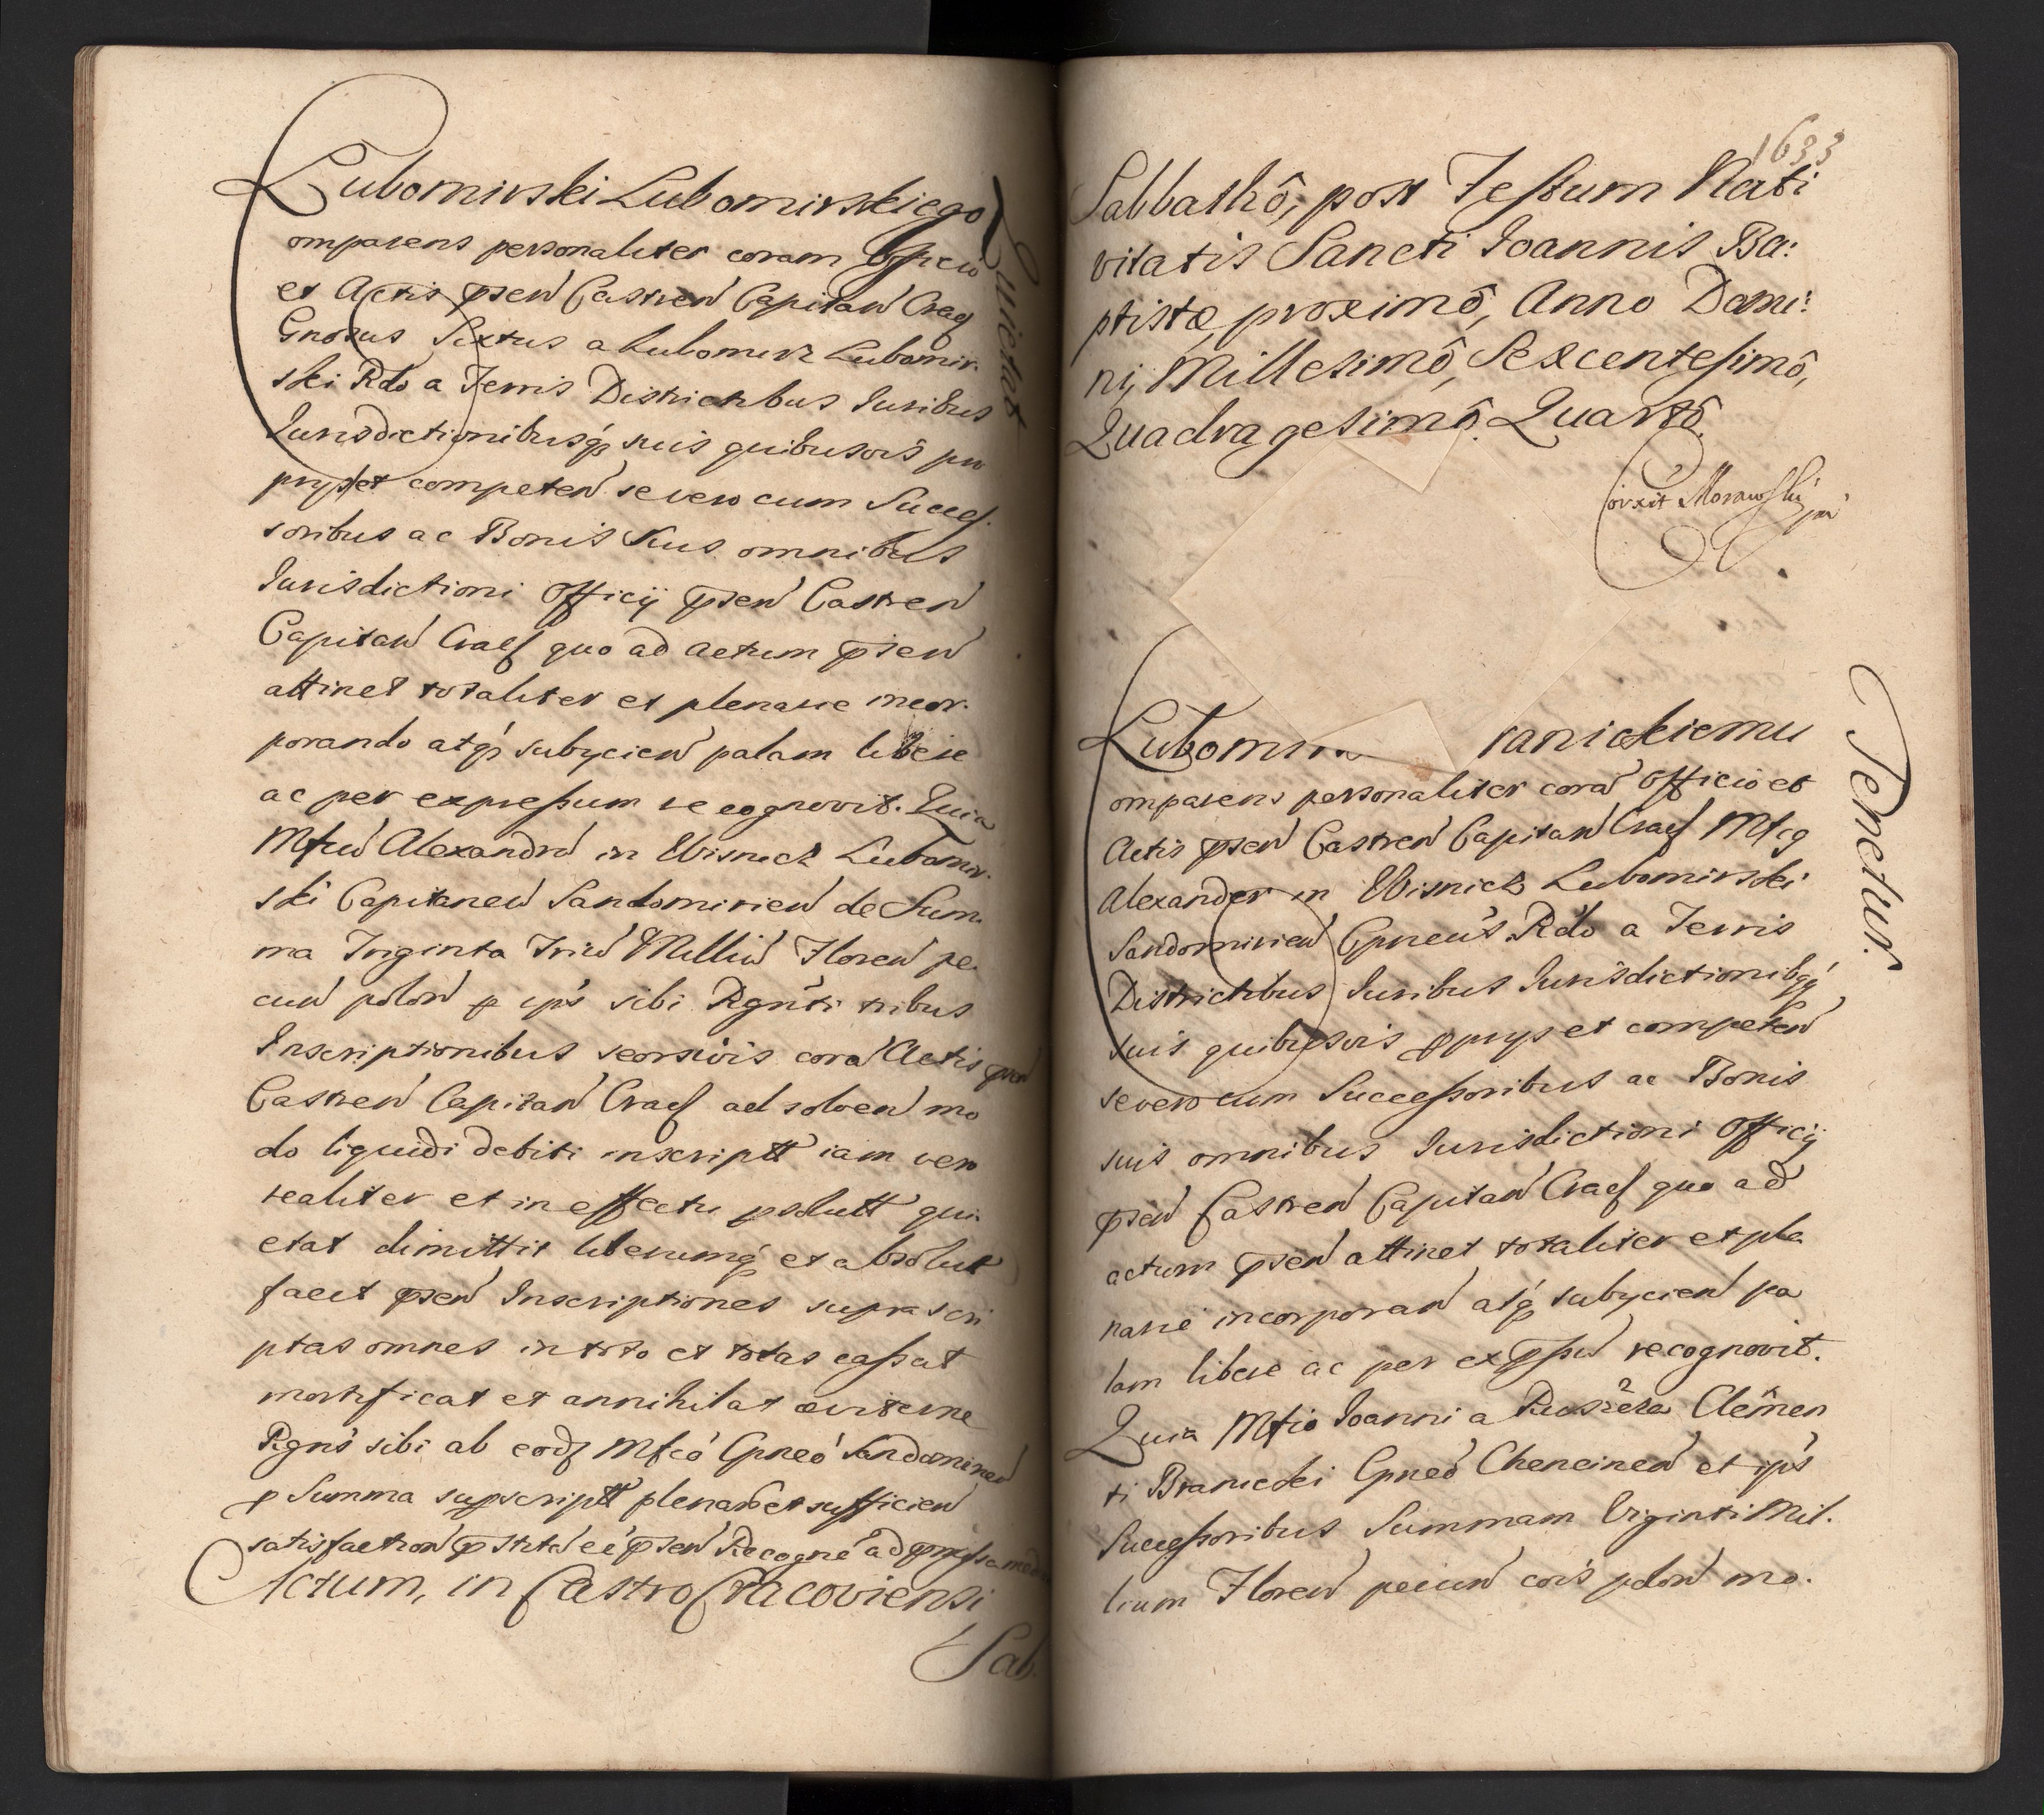 Lubomirski Lubomirskiego
Quietat
omparens personaliter coram Officio
et Actis pñsen Castren Capitan Crac
Gnosus Sixtus a Lubomirz Lubomir-
ski Rdo a Terris Districtibus Iuribus
Iurisdictionibusq suis quibusvis pro
prys et competen se vero cum Succes-
soribus ac Bonis suis omnibus
Iurisdictioni Officij pñsen Castren
Capitan Crac quo ad actum pñsen
attinet totaliter et plenarie incor-
porando atq subycien palam libere
ac per expressum recognovit. Quia
Mfcu Alexandru in Wisnicz Lubomir-
ski Capitaneu Sandomirien de Sum-
ma Triginta Triu Milliu Floren pe-
cun polon p ips sibi Rgnti tribus
Inscriptionibus seorsivis cora Actis pñsen
Castren Capitan Crac ad solven mo
do liquidi debiti inscriptt iam vero
realiter et in effectu psolutt qui-
etat dimittit liberumq et absolut
facit pñsen Inscriptiones suprascri
ptas omnes in toto et totas cassat
mortificat et annihilat aeviterne
Rgns sibi ab eodz Mfco Cpneo Sandomirien
p Summa supscriptt plenar et sufficien
satisfaction pstita ee pñsen Recogne ad pmissa mediante
Actum, in Castro Cracoviensi
Sab-
1633
Sabbathô, post Festum Nati
vitatis Sancti Ioannis Ba:
ptistæ, proximô, Anno Domi:
ni, Millesimô, Sexcentesimô,
Quadragesimô Quartô.
Corrxit Morawski
mp
Lubomirs ranickiemu
Tenetur.
omparens personaliter cora Officio et
Actis pñsen Castren Capitan Crac Mfcg
Alexander in Wisnicz Lubomirski
Sandomirien Cpneus Rdo a Terris
Districtibus Iuribus Iurisdictionibqq
suis quibusvis pprys et competen
se vero cum Successoribus ac Bonis
suis omnibus Iurisdictioni Officij
pñsen Castren Capitan Crac quo ad
actum pñsen attinet totaliter et ple
narie incorporan atq subycien pa
lam libere ac per expssu recognovit.
Quia Mfco Ioanni a Ruszcza Clemen
ti Branicki Cpneo Chencinen et ips
Successoribus Summam Viginti Mil-
lium Floren pecun cois polon mo-